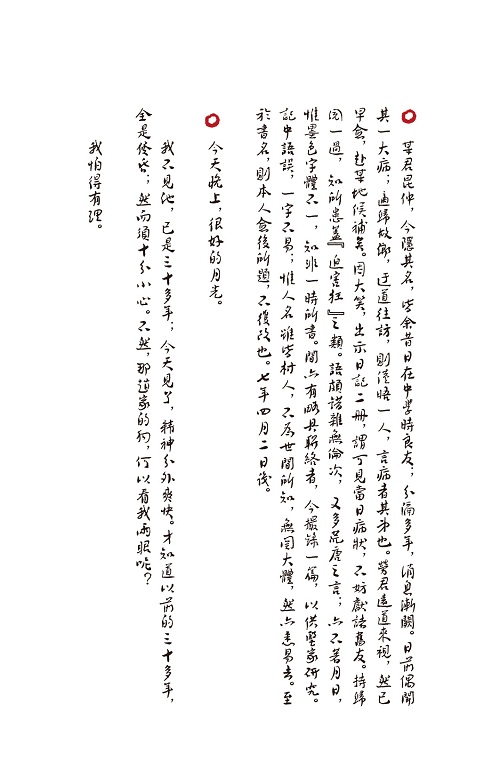 某君昆仲，今隱其名，皆余昔日在中學時良友；分隔多年，消息漸闕。日前偶聞
其一大病；適歸故鄉，迂道往訪，則僅晤一人，言病者其弟也。勞君遠道來視，然已
早愈，赴某地候補矣。因大笑，出示日記二冊，謂可見當日病狀，不妨獻諸舊友。持歸
閱一過，知所患蓋『迫害狂』之類。語頗錯雜無倫次，又多荒唐之言；亦不著月日，
惟墨色字體不一，知非一時所書。間亦有略具聯絡者，今撮錄一篇，以供醫家研究。
記中語誤，一字不易；惟人名雖皆村人，不為世間所知，無關大體，然亦悉易去。至
於書名，則本人愈後所題，不復改也。七年四月二日識。
今天晚上，很好的月光。
我不見他，已是三十多年；今天見了，精神分外爽快。才知道以前的三十多年，
全是發昏；然而須十分小心。不然，那趙家的狗，何以看我兩眼呢？
我怕得有理。